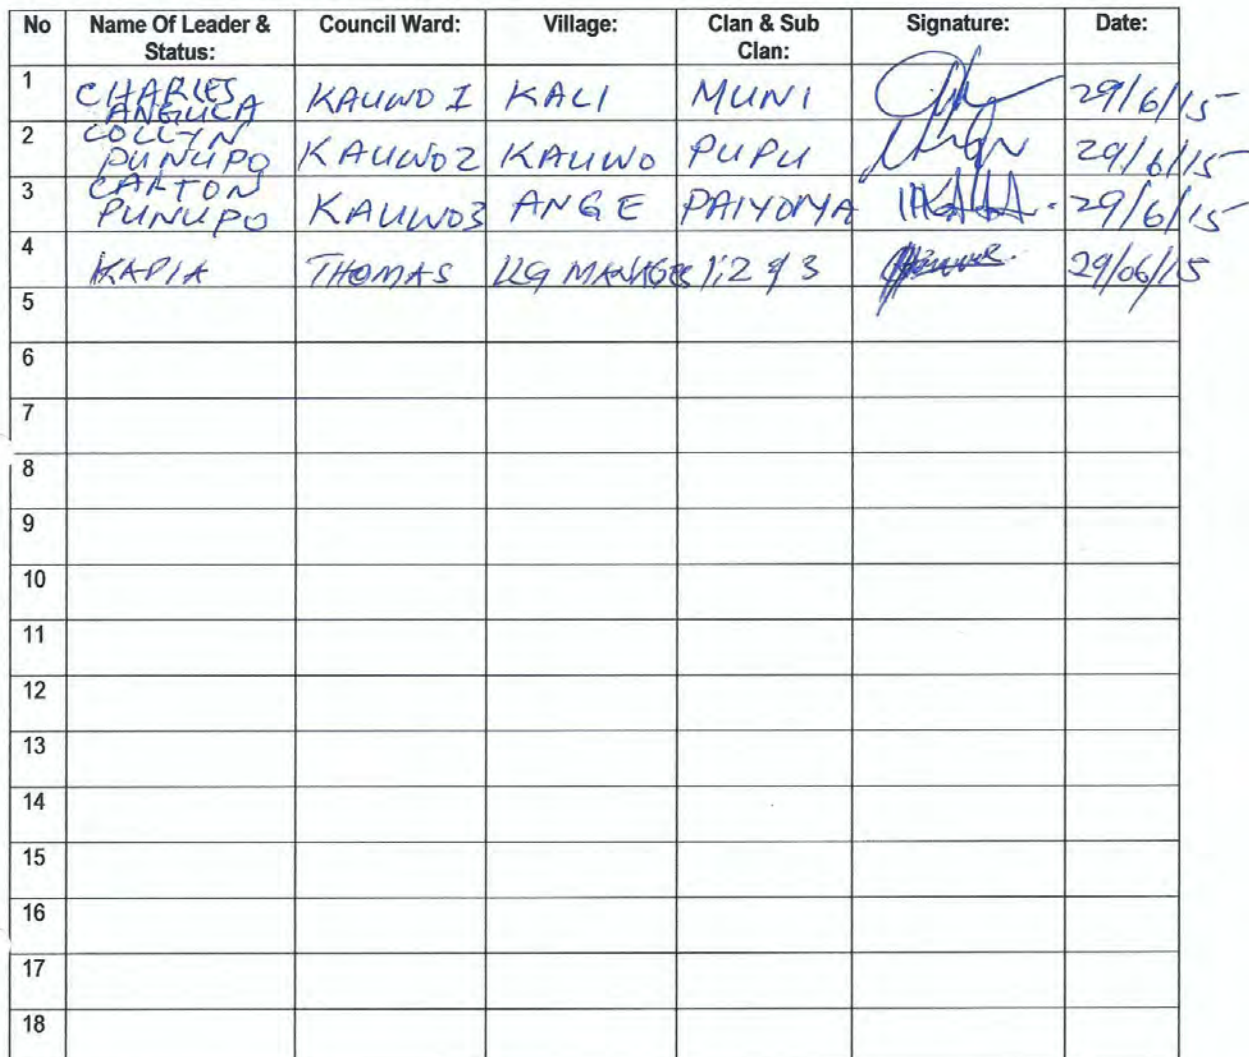 No Name Of Leader & Status: Council Ward: Village: Clan & Sub Clan: Signature: Date:
1 CHARLES ANGULA KAUWO 1 KALI MUNI 29/6/15
2 COLLYN PUNUPO KAUWO2 KAUWO PUPU 29/6/15
3 CARTON PUNUPO KAUWO3 ANGE PAIYOMA 29/6/15
4 KAPIA THOMAS LLG MANAGER 1,2 & 3 29/06/15
5
6
7
8
9
10
11
12
13
14
15
16
17
18